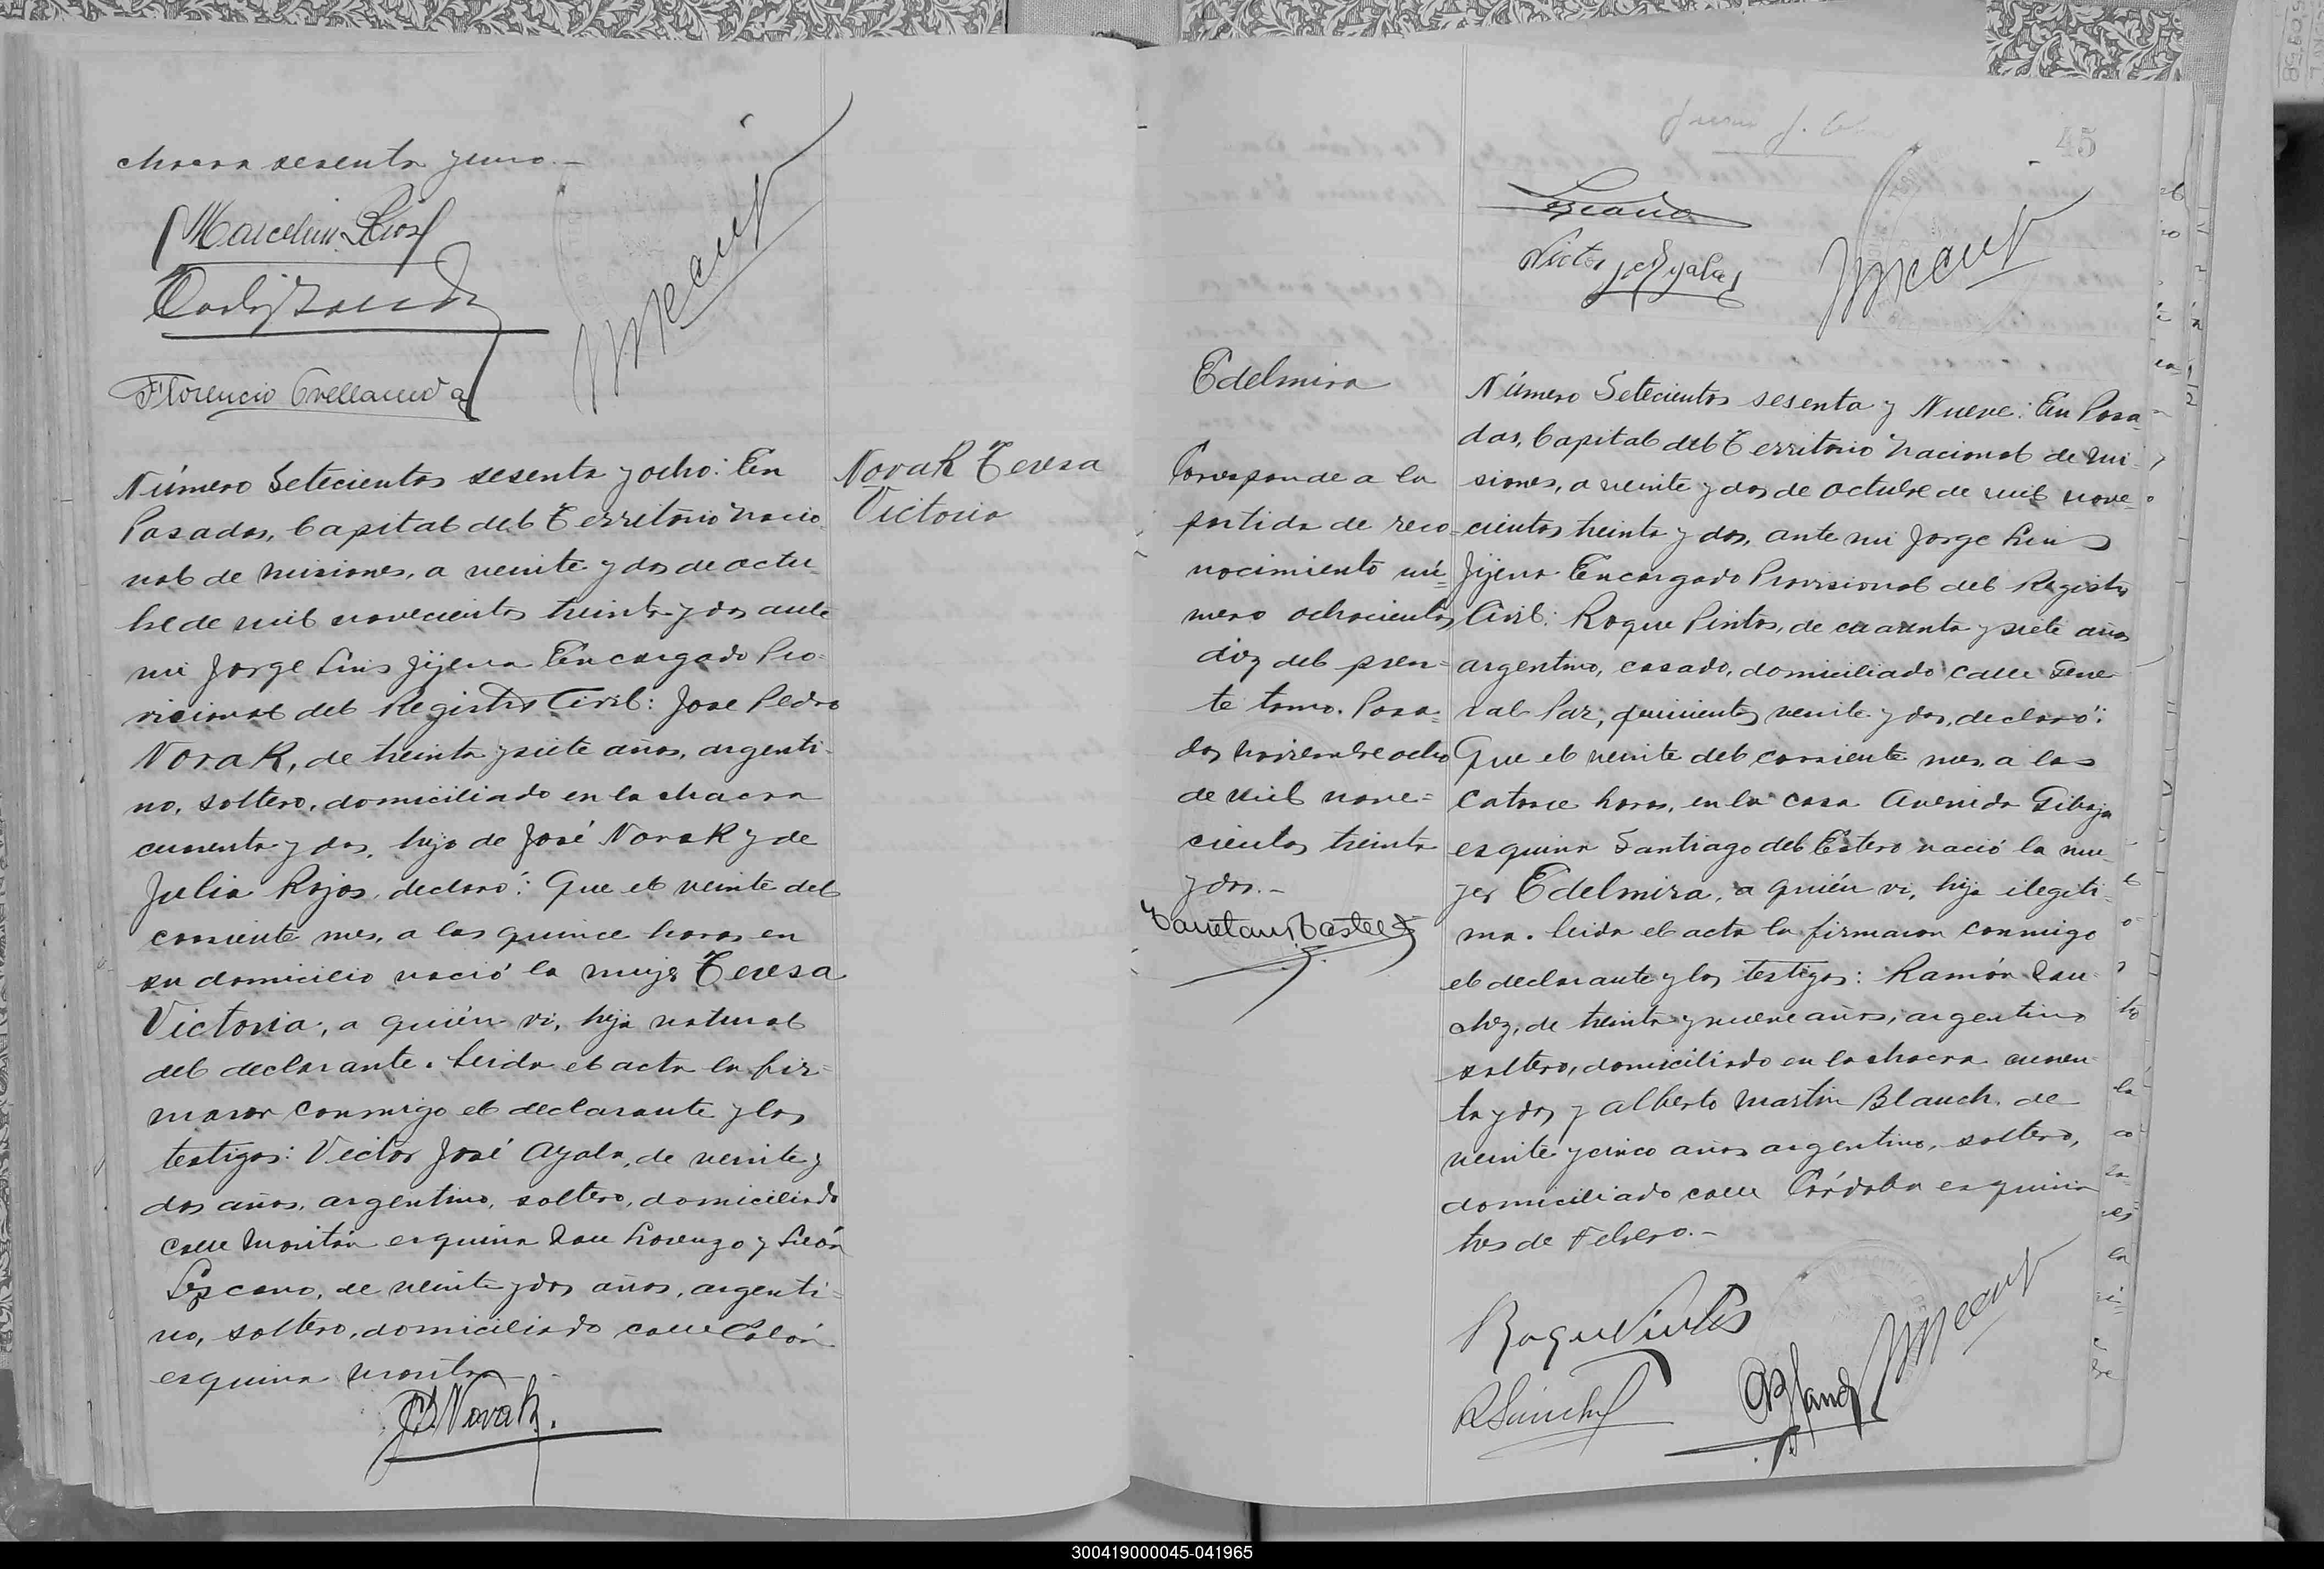 chacra sesenta y uno.—
Marcelino Rios
Florencio Avellaneda
Número Setecientos sesenta y ocho: En
Posadas, Capital del Territorio Nacio
nal de Misiones, a veinte y dos de octu-
bre de mil novecientos treinta y dos ante
mi Jorge Luis Jijena Encargado Pro-
visional del Registro Civil: Jose Pedro
Novak, de treinta y siete años, argenti-
no, soltero, domiciliado en la chacra
cuarenta y dos, hijo de José Novak y de
Julia Rojas, declaró: Que el veinte del
corriente mes, a las quince horas en
su domicilio nació la mujer Teresa
Victoria, a quién vi, hija natural
del declarante. Leida el acta la fir-
maron conmigo el declarante y los
testigos: Victor José Ayala, de veinte y
dos años, argentino, soltero, domiciliado
calle Moritán esquina San Lorenzo y León
Lezcano, de veinte y dos años, argenti-
no, soltero, domiciliado calle Colón
esquina Moritan
JP Novak.
Novak Teresa
Victoria
45
Lezcano
Victor J Ayala
Edelmira
Corresponde a la
partida de reco-
nocimiento nú-
mero ochocientos
diez del presen-
te tomo. Posa-
das Noviembre ocho
de mil nove-
cientos treinta
y dos.—
Número Setecientos sesenta y Nueve: En Posa-
das, Capital del Territorio Nacional de Mi-
siones, a veinte y dos de octubre de mil nove-
cientos treinta y dos, ante mi Jorge Luis
Jijena Encargado Provisional del Registro
Civil: Roque Pintos, de cuarenta y siete años
argentino, casado, domiciliado calle Gene-
ral Paz, quinientos veinte y dos, declaró:
Que el veinte del corriente mes, a las
catorce horas, en la casa Avenida Gibaja
esquina Santiago del Estero nació la mu-
jer Edelmira, a quién vi, hija ilegiti-
ma. Leida el acta la firmaron conmigo
el declarante y los testigos: Ramón San-
chez, de treinta y nueve años, argentino
soltero, domiciliado en la chacra cuaren-
ta y dos y Alberto Martin Blanch, de
veinte y cinco años argentino, soltero,
domiciliado calle Córdoba esquina
tres de Febrero.—
Roque Pintos
R Sánchez
A Blanch
300419000045-041965